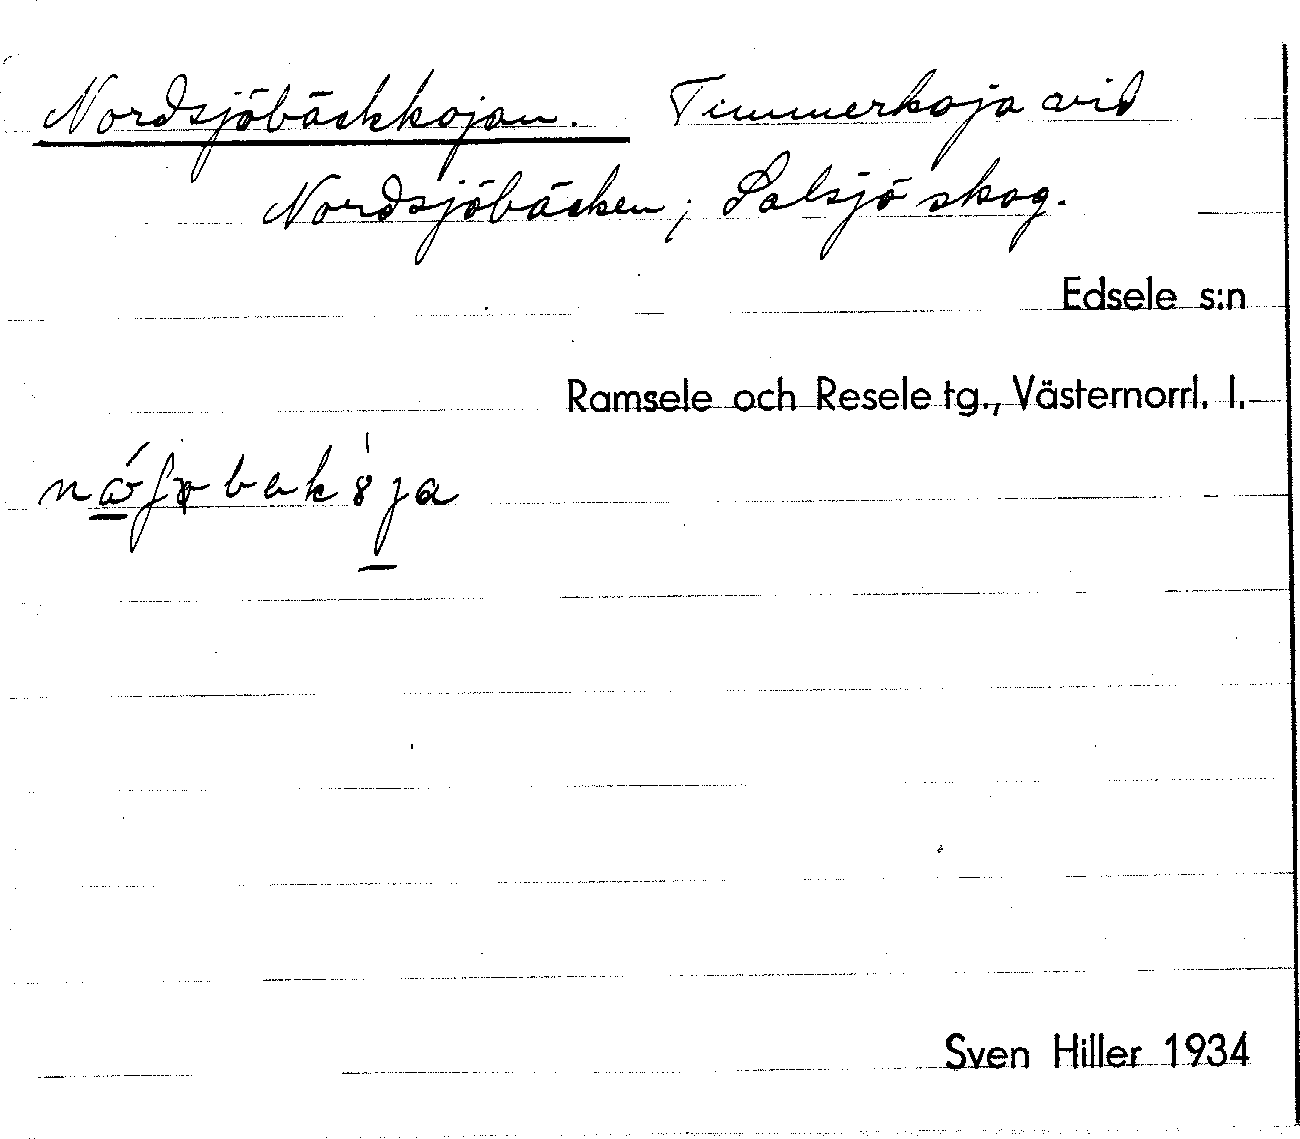 Nordsjöbäckkojan. Timmerkoja vid
Nordsjöbäcken, Salsjö skog.
Edsele s:n
Ramsele och Resele tg., Västernorrl. l.
Sven Hiller 1934